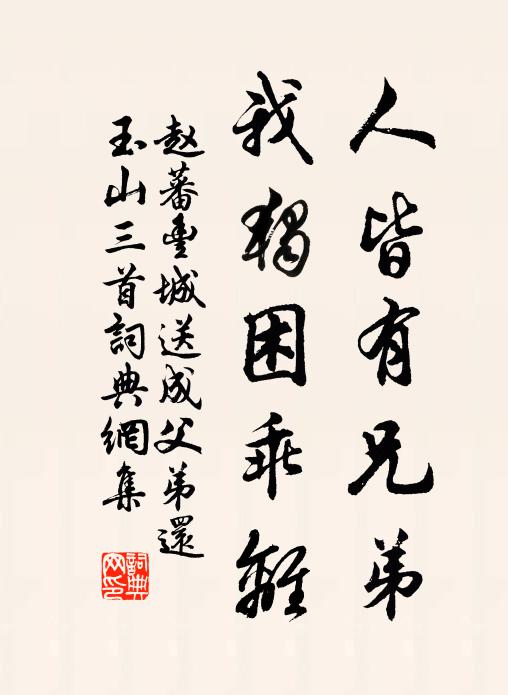 人皆有兄弟
我獨困乖離
赵蕃豐城送成父弟還
玉山三首詞典網集
詞典
网印